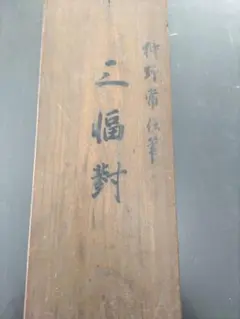 狩野常信筆
三幅對